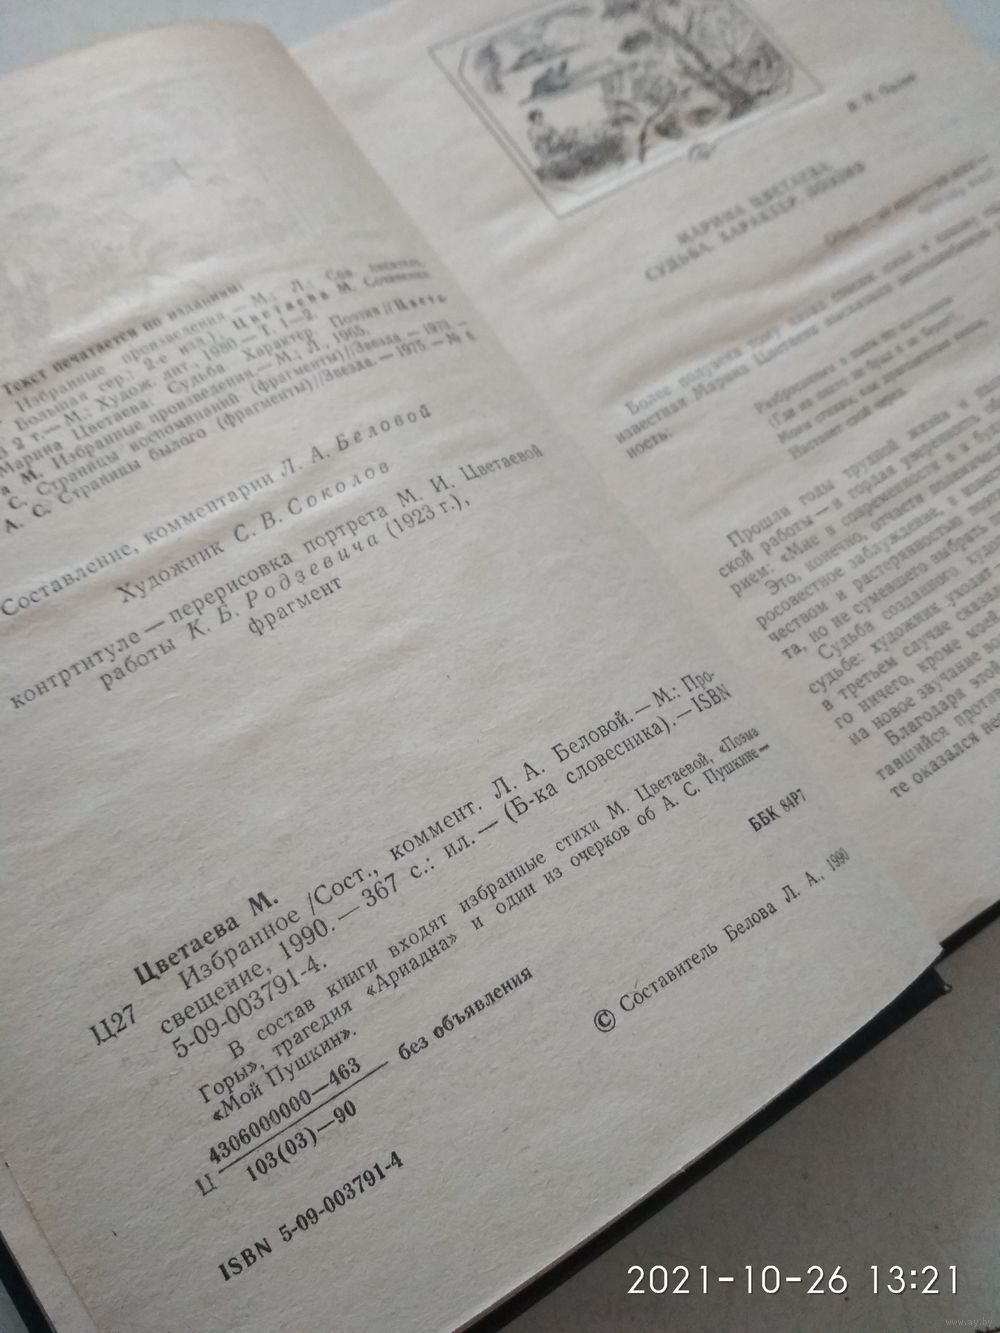 Текст печатается по изданиям:
Избранные произведения.—М.; Л.: Сов. писатель,
Большая сер.; 2-е изд.); Цветаева М. Сочинения
В 2 т.—М.: Худож. лит., 1980.—Т. 1—2.
Марина Цветаева: Судьба. Характер. Поэзия//Цвета-
а М. Избранные произведения.—М.; Л., 1965.
С. Страницы воспоминаний (фрагменты)//Звезда.—1973.—
А. С. Страницы былого (фрагменты)//Звезда.—1975.—№ 6.
Составление, комментарии Л. А. Беловой
Художник С. В. Соколов
контртитуле — перерисовка портрета М. И. Цветаевой
работы К. Б. Родзевича (1923 г.),
фрагмент
Цветаева М.
Ц27 Избранное /Сост., коммент. Л. А. Беловой. — М.: Про-
свещение, 1990. — 367 с.: ил. — (Б-ка словесника). — ISBN
5-09-003791-4.
В состав книги входят избранные стихи М. Цветаевой, «Поэма
Горы», трагедия «Ариадна» и один из очерков об А. С. Пушкине —
«Мой Пушкин».
Ц 4306000000—463
103(03)—90 — без объявления
ББК 84Р7
ISBN 5-09-003791-4
© Составитель Белова Л. А., 1990
В. Н. Орлов
МАРИНА ЦВЕТАЕВА.
СУДЬБА. ХАРАКТЕР. ПОЭЗИЯ
Более полувека тому назад
известная Марина Цветаева высказала
ность:
Разбросанным в пыли по магазинам
(Где их никто не брал и не берет!),
Моим стихам, как драгоценным винам,
Настанет свой черед.
Прошли годы трудной жизни и
ской работы — и гордая уверенность
рием: «Мне в современности и в буду
Это, конечно, отчасти
росовестное заблуждение, в
чеством и растерянностью
та, но не сумевшего выбрать
Судьба созданного худож
судьбе: художник уходит
в третьем случае сказал
го ничего, кроме моей
на новое звучание во
Благодаря этой
тавшийся проти
те оказался не
2021-10-26 13:21
www.ay.by